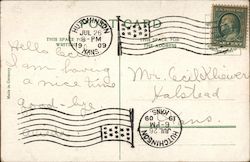 POST CARD
THIS SPACE FOR
WRITING
THE ADDRESS
HUTCHINSON
JUL 26
8-PM
1909
KANS.
Hello
I am having
a nice time
good-bye
Mr.
Halstead
Kans.
HUTCHINSON
JUL 26
8-PM
1909
KANS.
Made in Germany